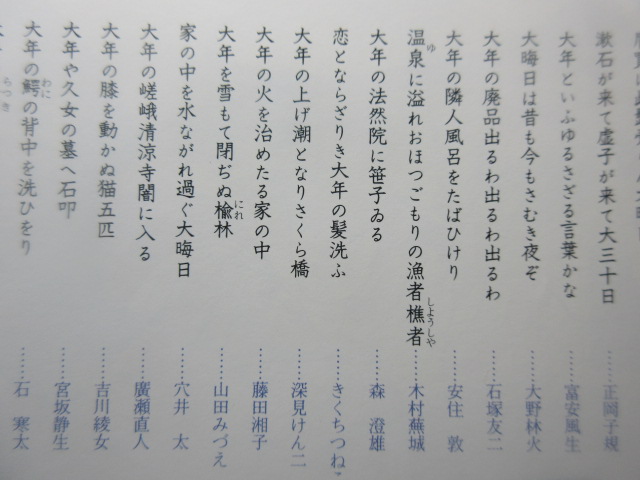 漱石が来て虚子が来て大三十日……正岡子規
大年といふゆるさざる言葉かな……富安風生
大晦日は昔も今もさむき夜ぞ……大野林火
大年の廃品出るわ出るわ出るわ……石塚友二
大年の隣人風呂をたばひけり……安住 敦
温泉に溢れおほつごもりの漁者樵者……木村蕪城
大年の法然院に笹子ゐる……森 澄雄
恋とならざりき大年の髪洗ふ……きくちつねこ
大年の上げ潮となりさくら橋……深見けん二
大年の火を治めたる家の中……藤田湘子
大年を雪もて閉ぢぬ楡林……山田みづえ
家の中を水ながれ過ぐ大晦日……穴井 太
大年の嵯峨清涼寺闇に入る……廣瀬直人
大年の膝を動かぬ猫五匹……吉川綾女
大年や久女の墓へ石叩……宮坂静生
大年の鰐の背中を洗ひをり……石 寒太